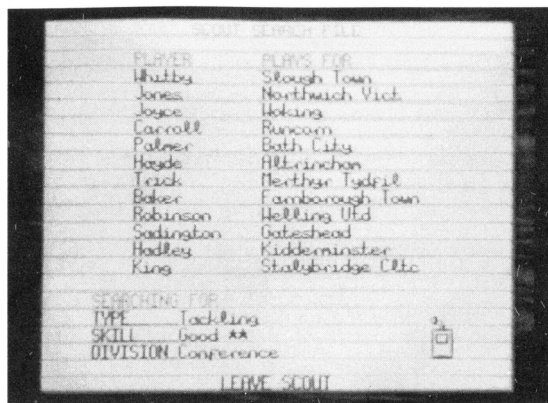 SCOUT SEARCH FILE
PLAYER PLAYS FOR
Whitby Slough Town
Jones Northwich Vict
Joyce Woking
Carroll Runcorn
Palmer Bath City
Heyde Altrincham
Trick Merthyr Tydfil
Baker Farnborough Town
Robinson Welling Utd
Sadington Gateshead
Hadley Kidderminster
King Stalybridge Cltc
SEARCHING FOR
TYPE Tackling
SKILL Good **
DIVISION Conference
LEAVE SCOUT